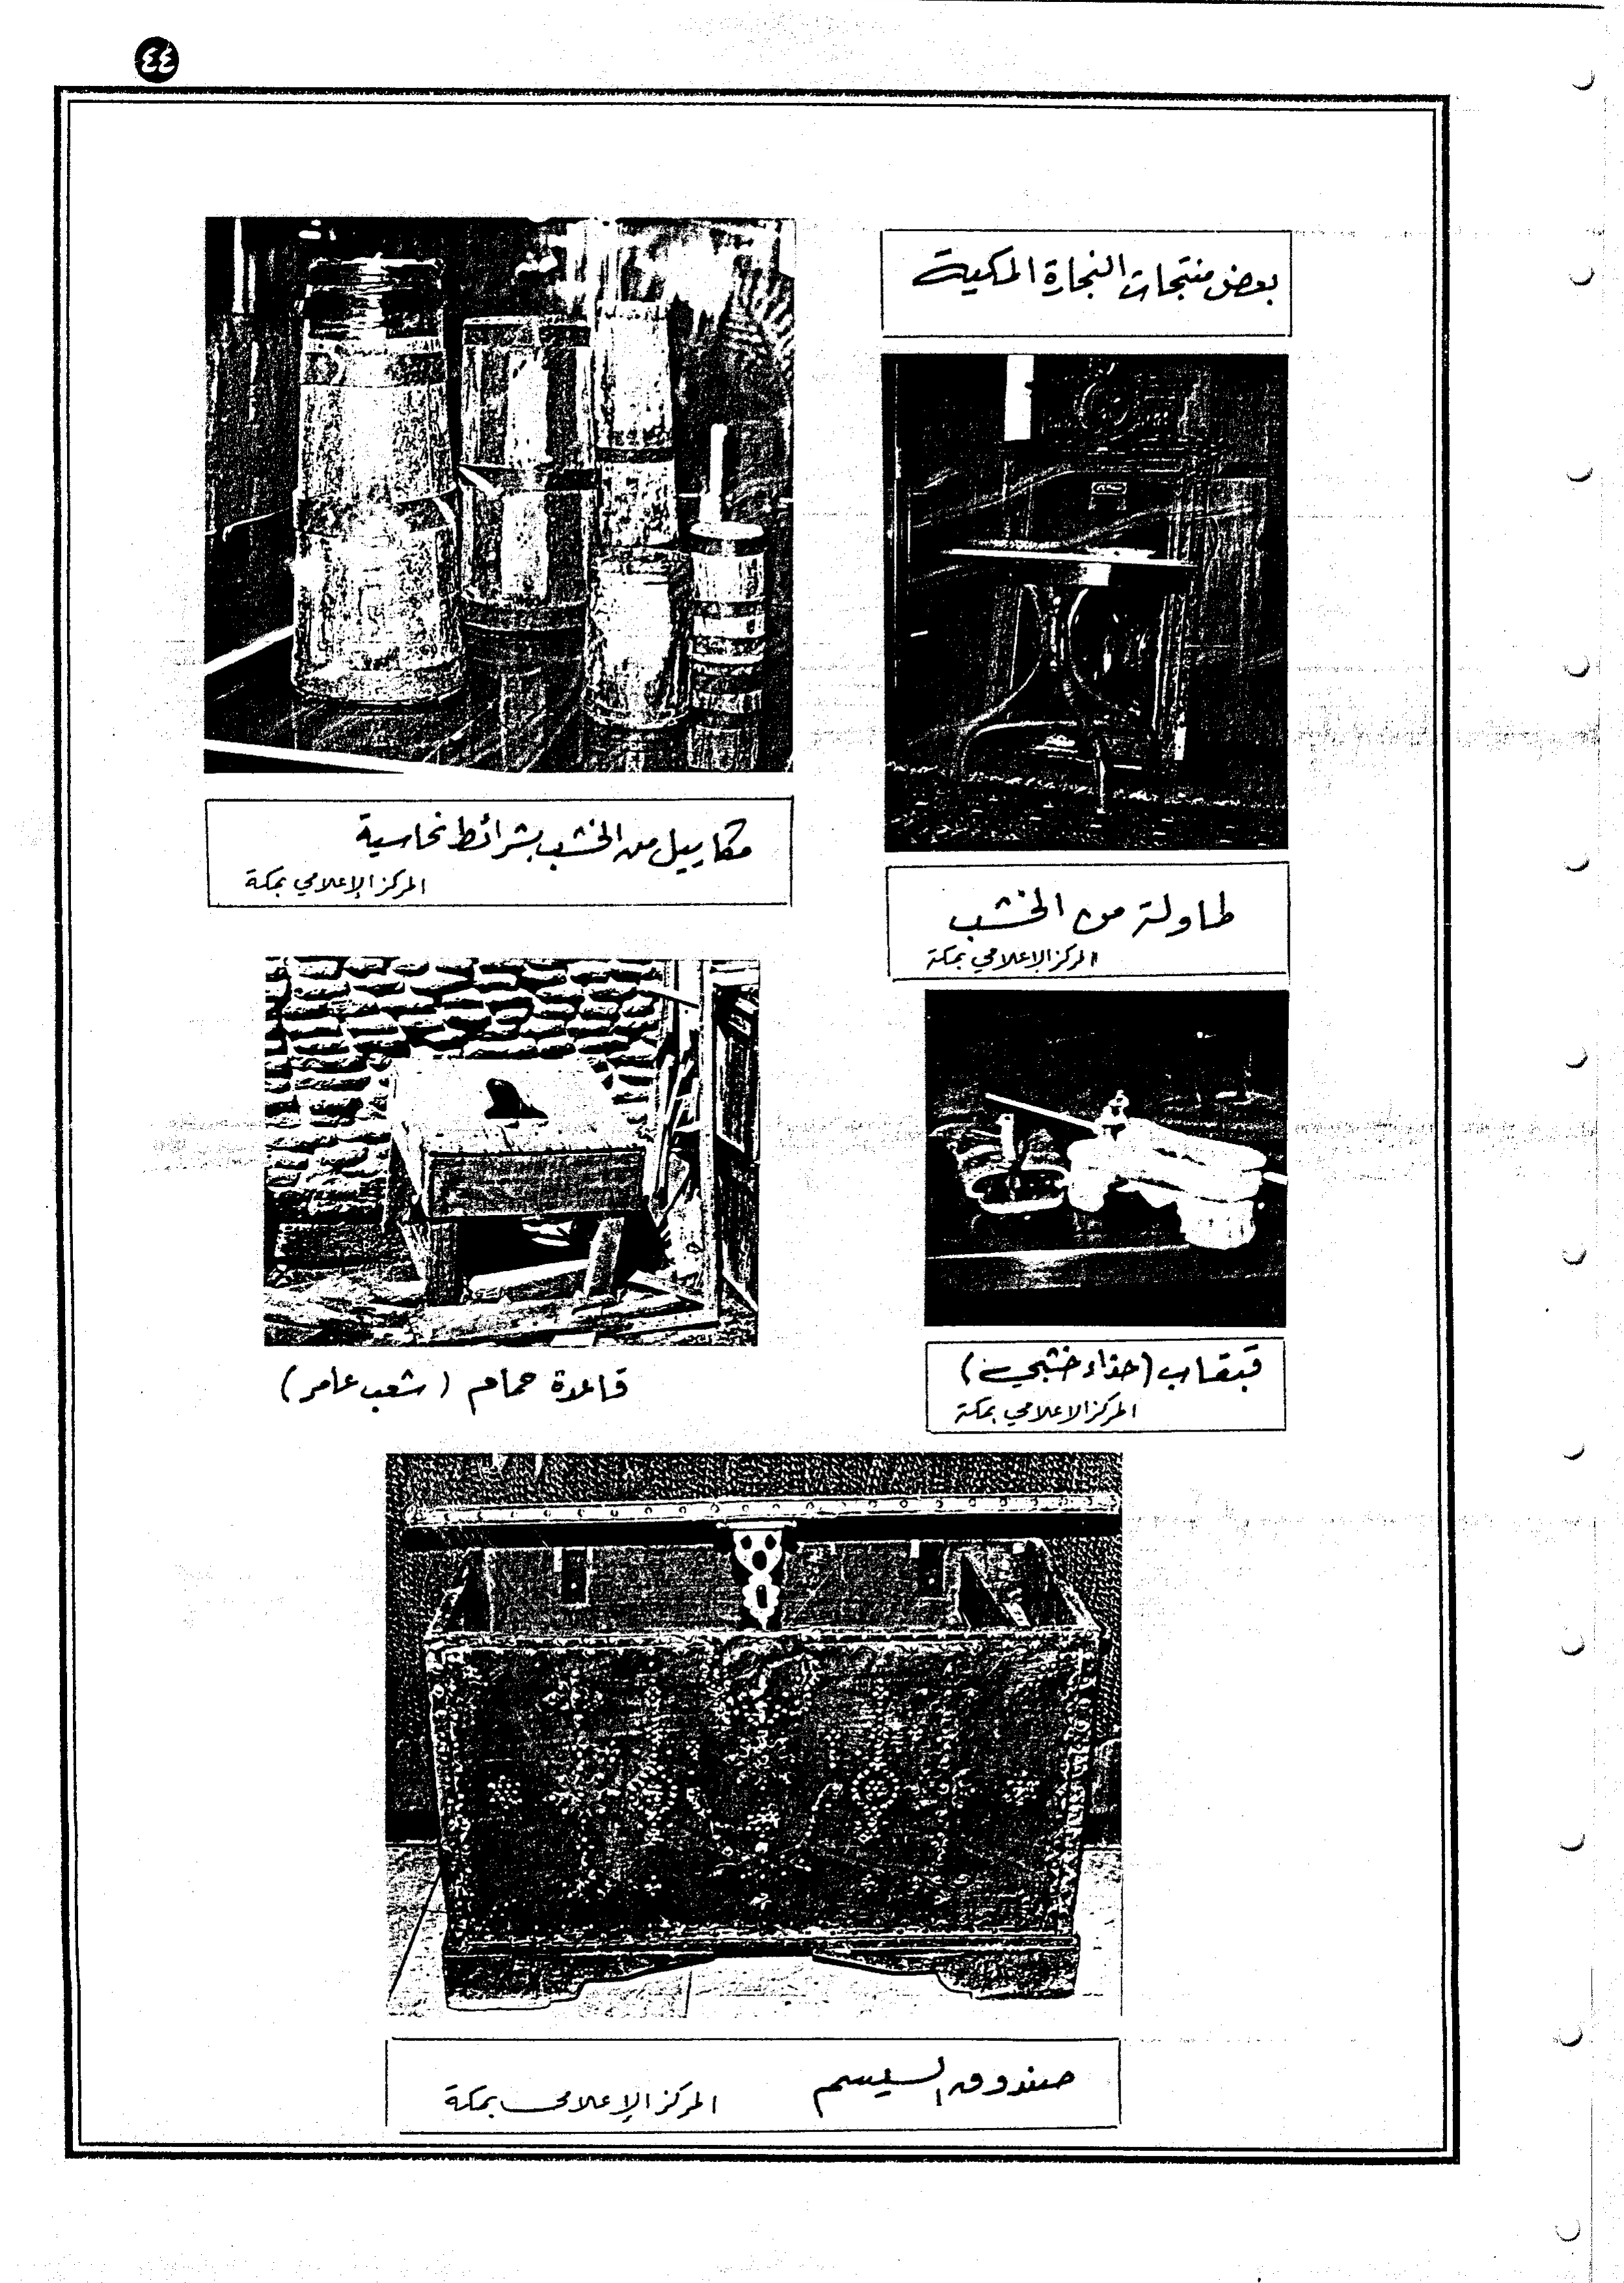 ٤٤
بعض منتجات النجارة المكية
مكاييل من الخشب بشرائط نحاسية
المركز الإعلامي بمكة
طاولة من الخشب
المركز الإعلامي بمكة
قاعدة حمام (شعب عامر)
قبقاب (حذاء خشبي)
المركز الاعلامي بمكة
صندوق السيسم
المركز الإعلامى بمكة